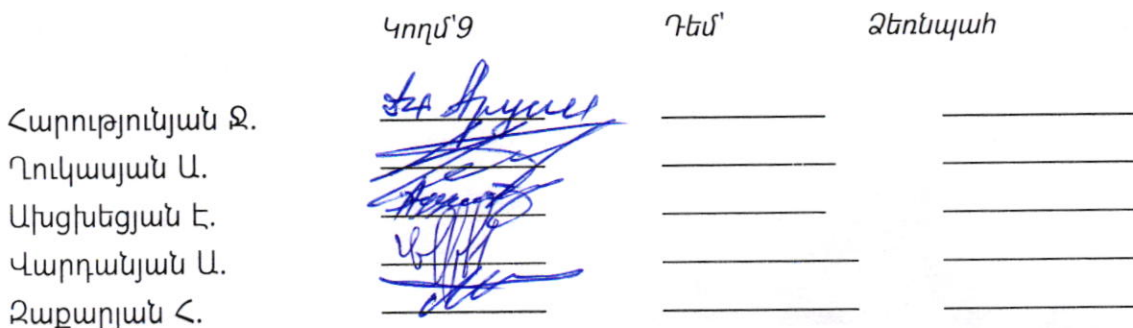 Կողմ՝9 Դեմ՝ Ձեռնպահ
Հարությունյան Ջ.
Ղուկասյան Ա.
Ախցխեցյան Է.
Վարդանյան Ա.
Զաքարյան Հ.